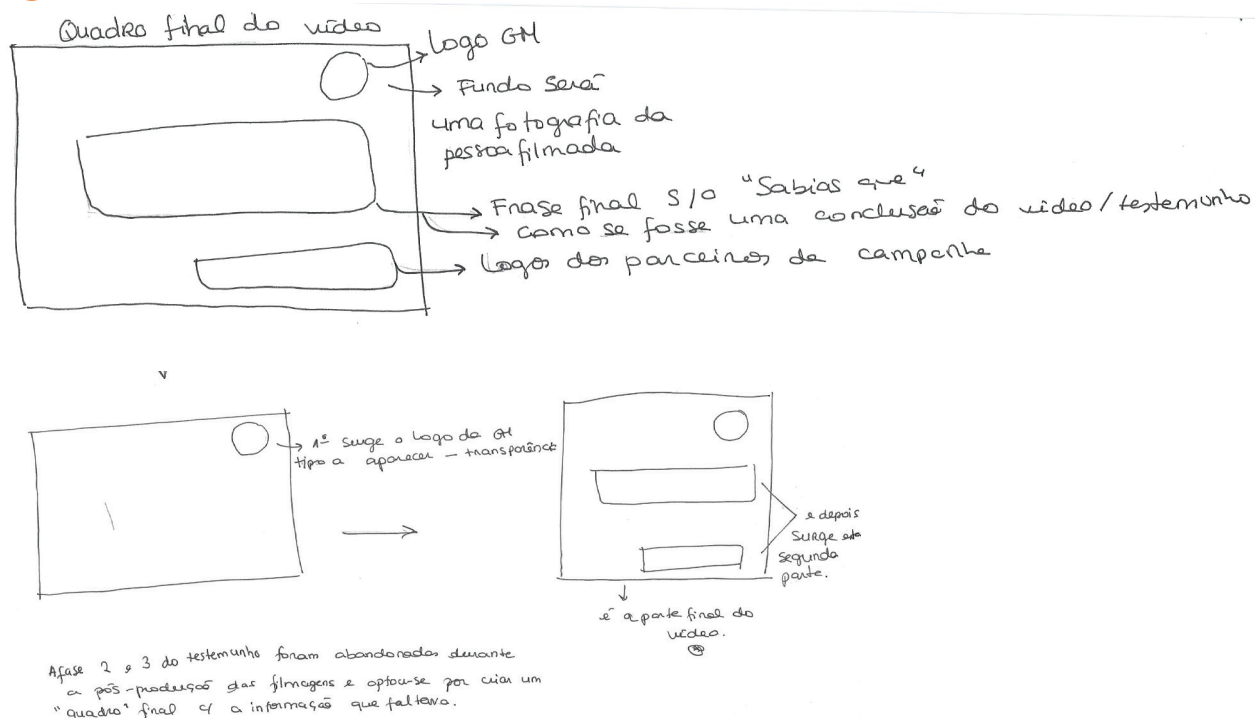 Quadro final do vídeo
Logo GM
Fundo será
uma fotografia da
pessoa filmada
Frase final s/o "Sabias que"
como se fosse uma conclusão do video/testemunho
Logos dos parceiros da campanha
1º surge o logo da GM
tipo a aparecer - transparência
e depois
surge esta
segunda
parte.
é a parte final do
video.
A fase 2 e 3 do testemunho foram abandonadas durante
a pós-produção das filmagens e optou-se por criar um
"quadro" final c/ a informação que faltava.